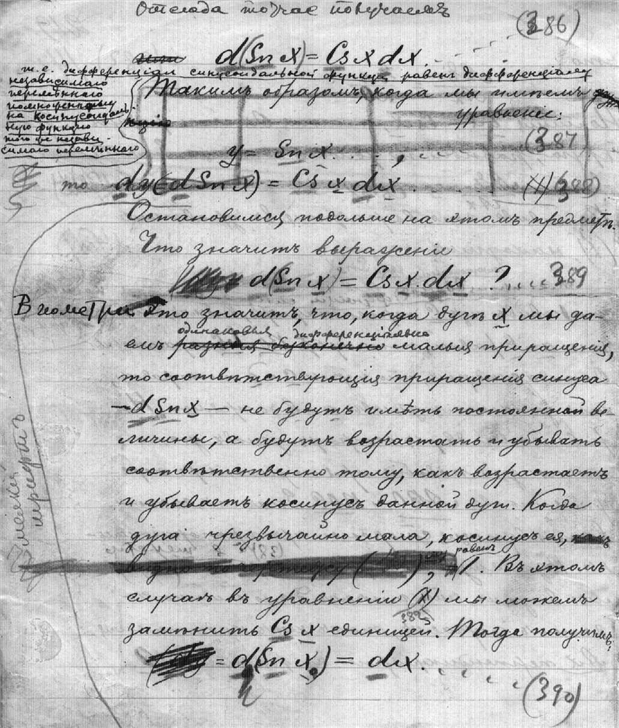 Отсюда тотчас получаемъ
(386)
d(Sn x) = Cs x dx.
т.е. дифференціалъ синусоидальной функціи равенъ дифференціалу
независимаго
перемѣннаго
помноженному
на косинусоидаль-
ную функцію
того же незави-
симаго перемѣннаго
Такимъ образомъ, когда мы имѣемъ
уравненіе:
y = Sn x . . . , . . . (387)
то dy(dSn x) = Cs x dx . . . (388)
Остановимся подольше на этомъ предметѣ.
Что значитъ выраженіе
d(Sn x) = Cs x. dx ? . . . . 389
В геометріи это значитъ, что, когда дугѣ x мы да-
одинаковыя дифференціально
емъ разныя безконечно малыя приращенія,
то соотвѣтствующія приращенія синуса
— d Sn x — не будутъ имѣть постоянной ве-
личины, а будутъ возрастать и убывать
соотвѣтственно тому, какъ возрастаетъ
и убываетъ косинусъ данной дуги. Когда
дуга чрезвычайно мала, косинусъ ея, какъ
равенъ
1. Въ этомъ
случаѣ въ уравненіи (x) мы можемъ
389
замѣнить Cs x единицей. Тогда получимъ:
= d(Sn x) = dx. . . . .
(390)
мелкій
шрифтъ